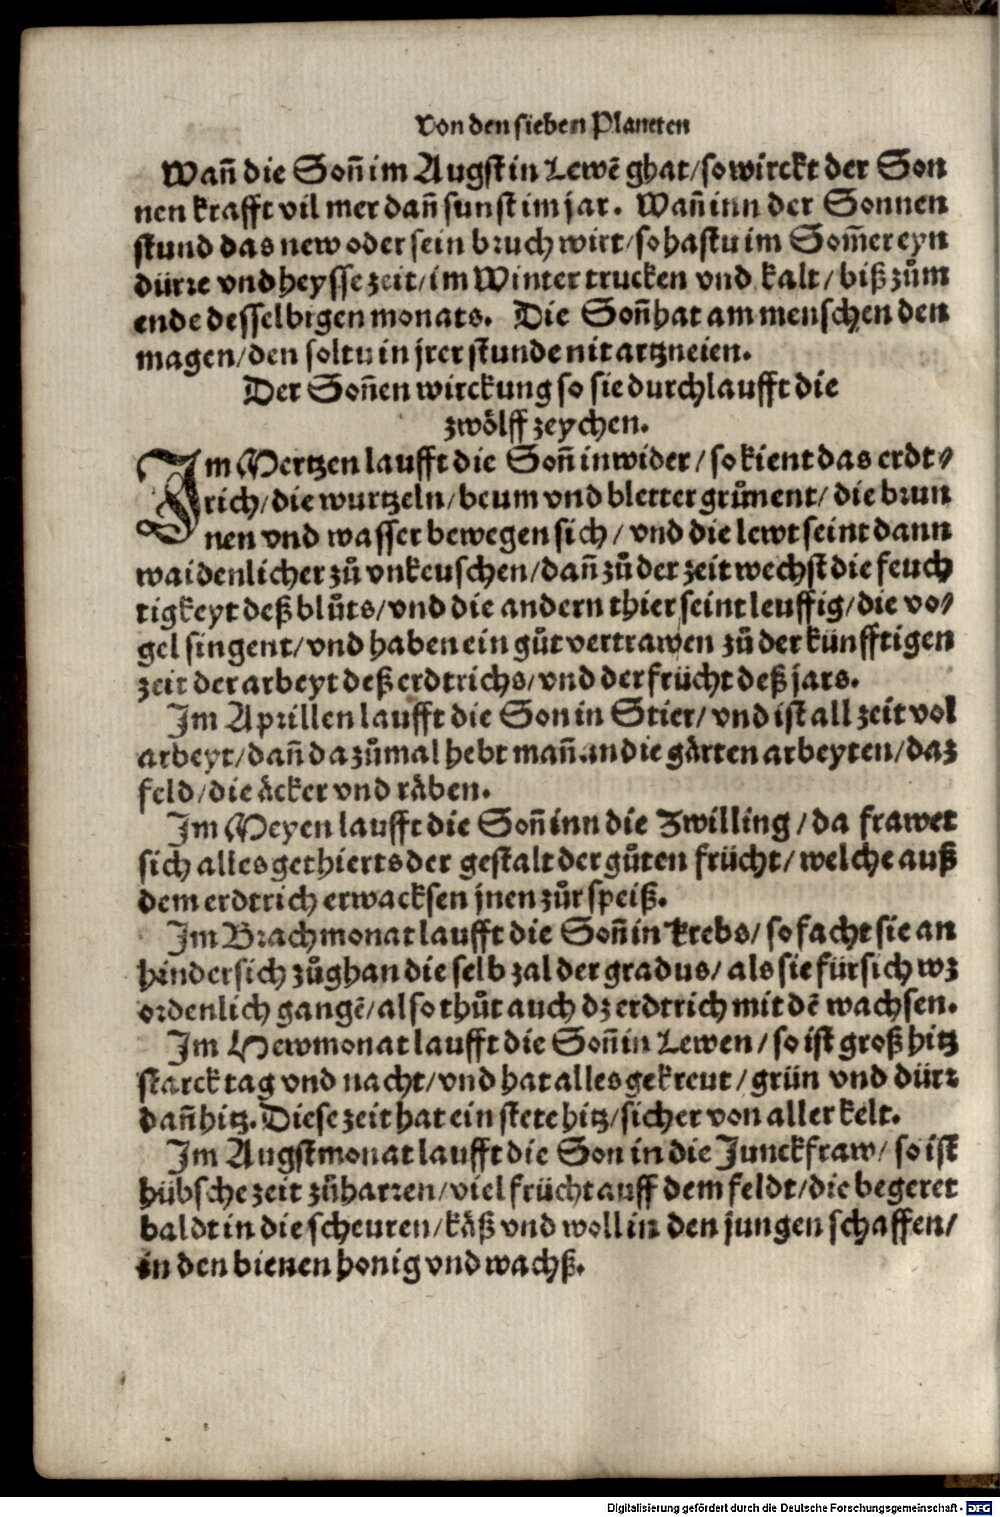 Von den sieben Planeten
Wañ die Soñ im Augst in Lewē ghat/so wirckt der Son
nen krafft vil mer dañ sunst im jar. Wañ inn der Sonnen
stund das new oder sein bruch wirt/so hastu im Som̃er eyn
dürre vnd heysse zeit/im Winter trucken vnd kalt/biß zům
ende desselbigen monats. Die Soñ hat am menschen den
magen/den soltu in jrer stunde nit artzneien.
Der Soñen wirckung so sie durchlaufft die
zwölff zeychen.
Im Mertzen laufft die Soñ in wider/so kient das erdt⸗
rich/die wurtzeln/beum vnd bletter grůnent/die brun
nen vnd wasser bewegen sich/vnd die lewt seint dann
waidenlicher zů vnkeuschen/dañ zů der zeit wechst die feuch
tigkeyt deß blůts/vnd die andern thier seint leuffig/die vo⸗
gel singent/vnd haben ein gůt vertrawen zů der künfftigen
zeit der arbeyt deß erdtrichs/vnd der frücht deß jars.
Im Aprillen laufft die Son in Stier/vnd ist all zeit vol
arbeyt/dañ da zůmal hebt mañ an die gärten arbeyten/daz
feld/die äcker vnd räben.
Im Meyen laufft die Soñ inn die Zwilling/da frawet
sich alles gethierts der gestalt der gůten frücht/welche auß
dem erdtrich erwacksen jnen zůr speiß.
Im Brachmonat laufft die Soñ in krebs/so facht sie an
hindersich zůghan die selb zal der gradus/als sie fürsich wz
ordenlich gangē/also thůt auch dz erdtrich mit dē wachsen.
Im Hewmonat laufft die Soñ in Lewen/so ist groß hitz
starck tag vnd nacht/vnd hat alles gekreut/grün vnd dürr
dañ hitz. Diese zeit hat ein stete hitz/sicher von aller kelt.
Im Augstmonat laufft die Son in die Junckfraw/so ist
hübsche zeit zůharren/viel frücht auff dem feldt/die begeret
baldt in die scheuren/käß vnd woll in den jungen schaffen/
in den bienen honig vnd wachß.
Digitalisierung gefördert durch die Deutsche Forschungsgemeinschaft - DFG